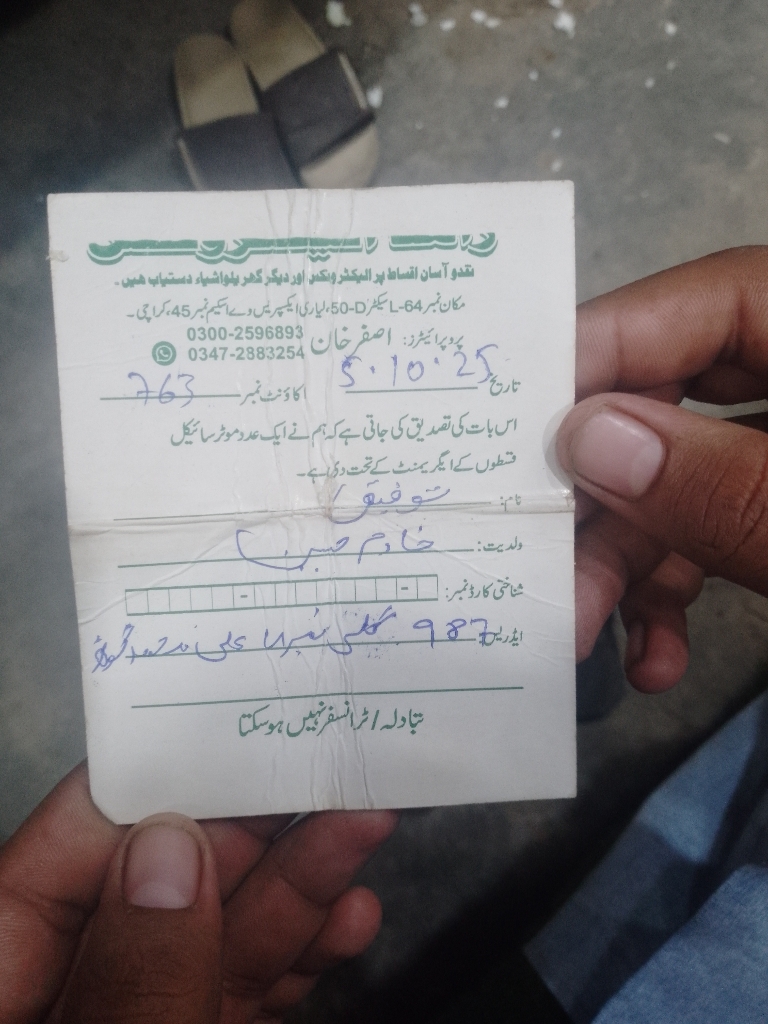 نقد و آسان اقساط پر الیکٹرونکس اور دیگر گھریلو اشیاء دستیاب ھیں۔
مکان نمبر L-64 سیکٹر 50-D، لیاری ایکسپریس وے اسکیم نمبر 45، کراچی۔
پروپرائیٹرز: اصغر خان 0300-2596893
0347-2883254
تاریخ 5.10.25 اکاؤنٹ نمبر 763
اس بات کی تصدیق کی جاتی ہے کہ ہم نے ایک عدد موٹر سائیکل
قسطوں کے ایگریمنٹ کے تحت دی ہے۔
نام: توفیق
ولدیت: خادم حسین
شناختی کارڈ نمبر: - -
ایڈریس 987 گلی نمبر علی محمد گوٹھ
تبادلہ / ٹرانسفر نہیں ہو سکتا